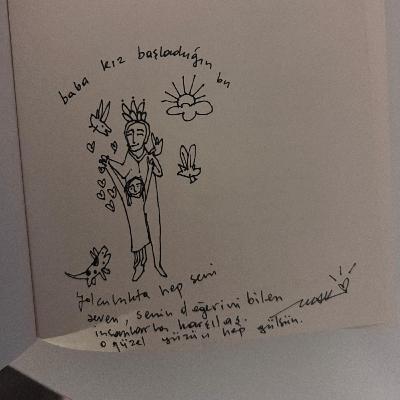 baba kız başladığın bu
yolculukta hep seni
seven, senin değerini bilen
insanlarla karşılaş.
o güzel yüzün hep gülsün.